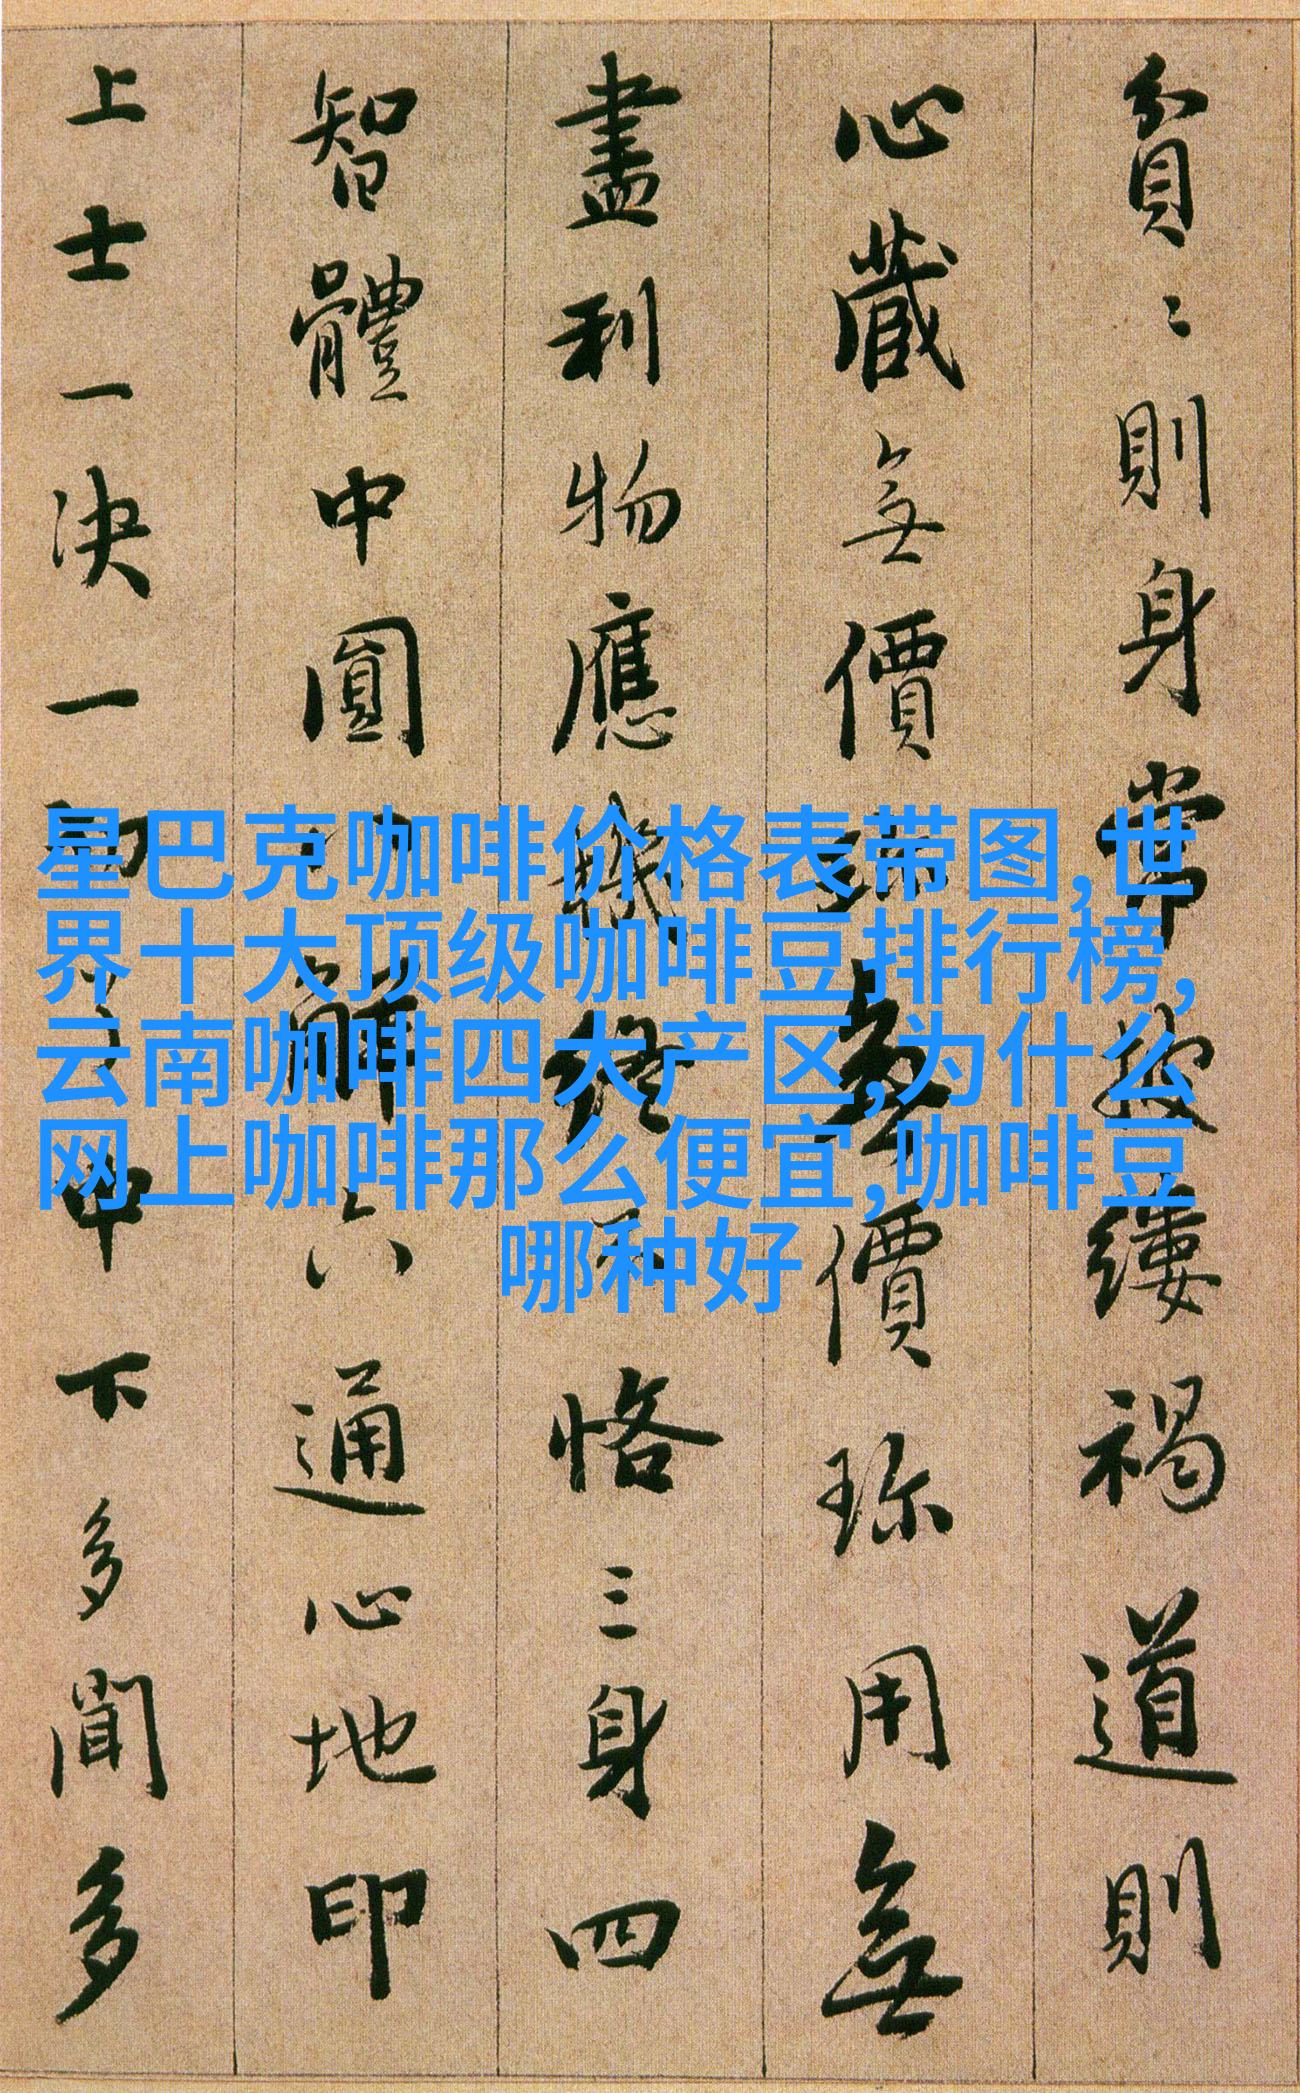 星巴克咖啡价格表带图,世
界十大顶级咖啡豆排行榜,
云南咖啡四大产区,为什么
网上咖啡那么便宜,咖啡豆
哪种好
貧〻則身常披縷褐道則
心藏無價珎無價珎用無
盡利物應機終不恪三身四
智體中圓八解六通心地印
上士一决一切了中下多聞多